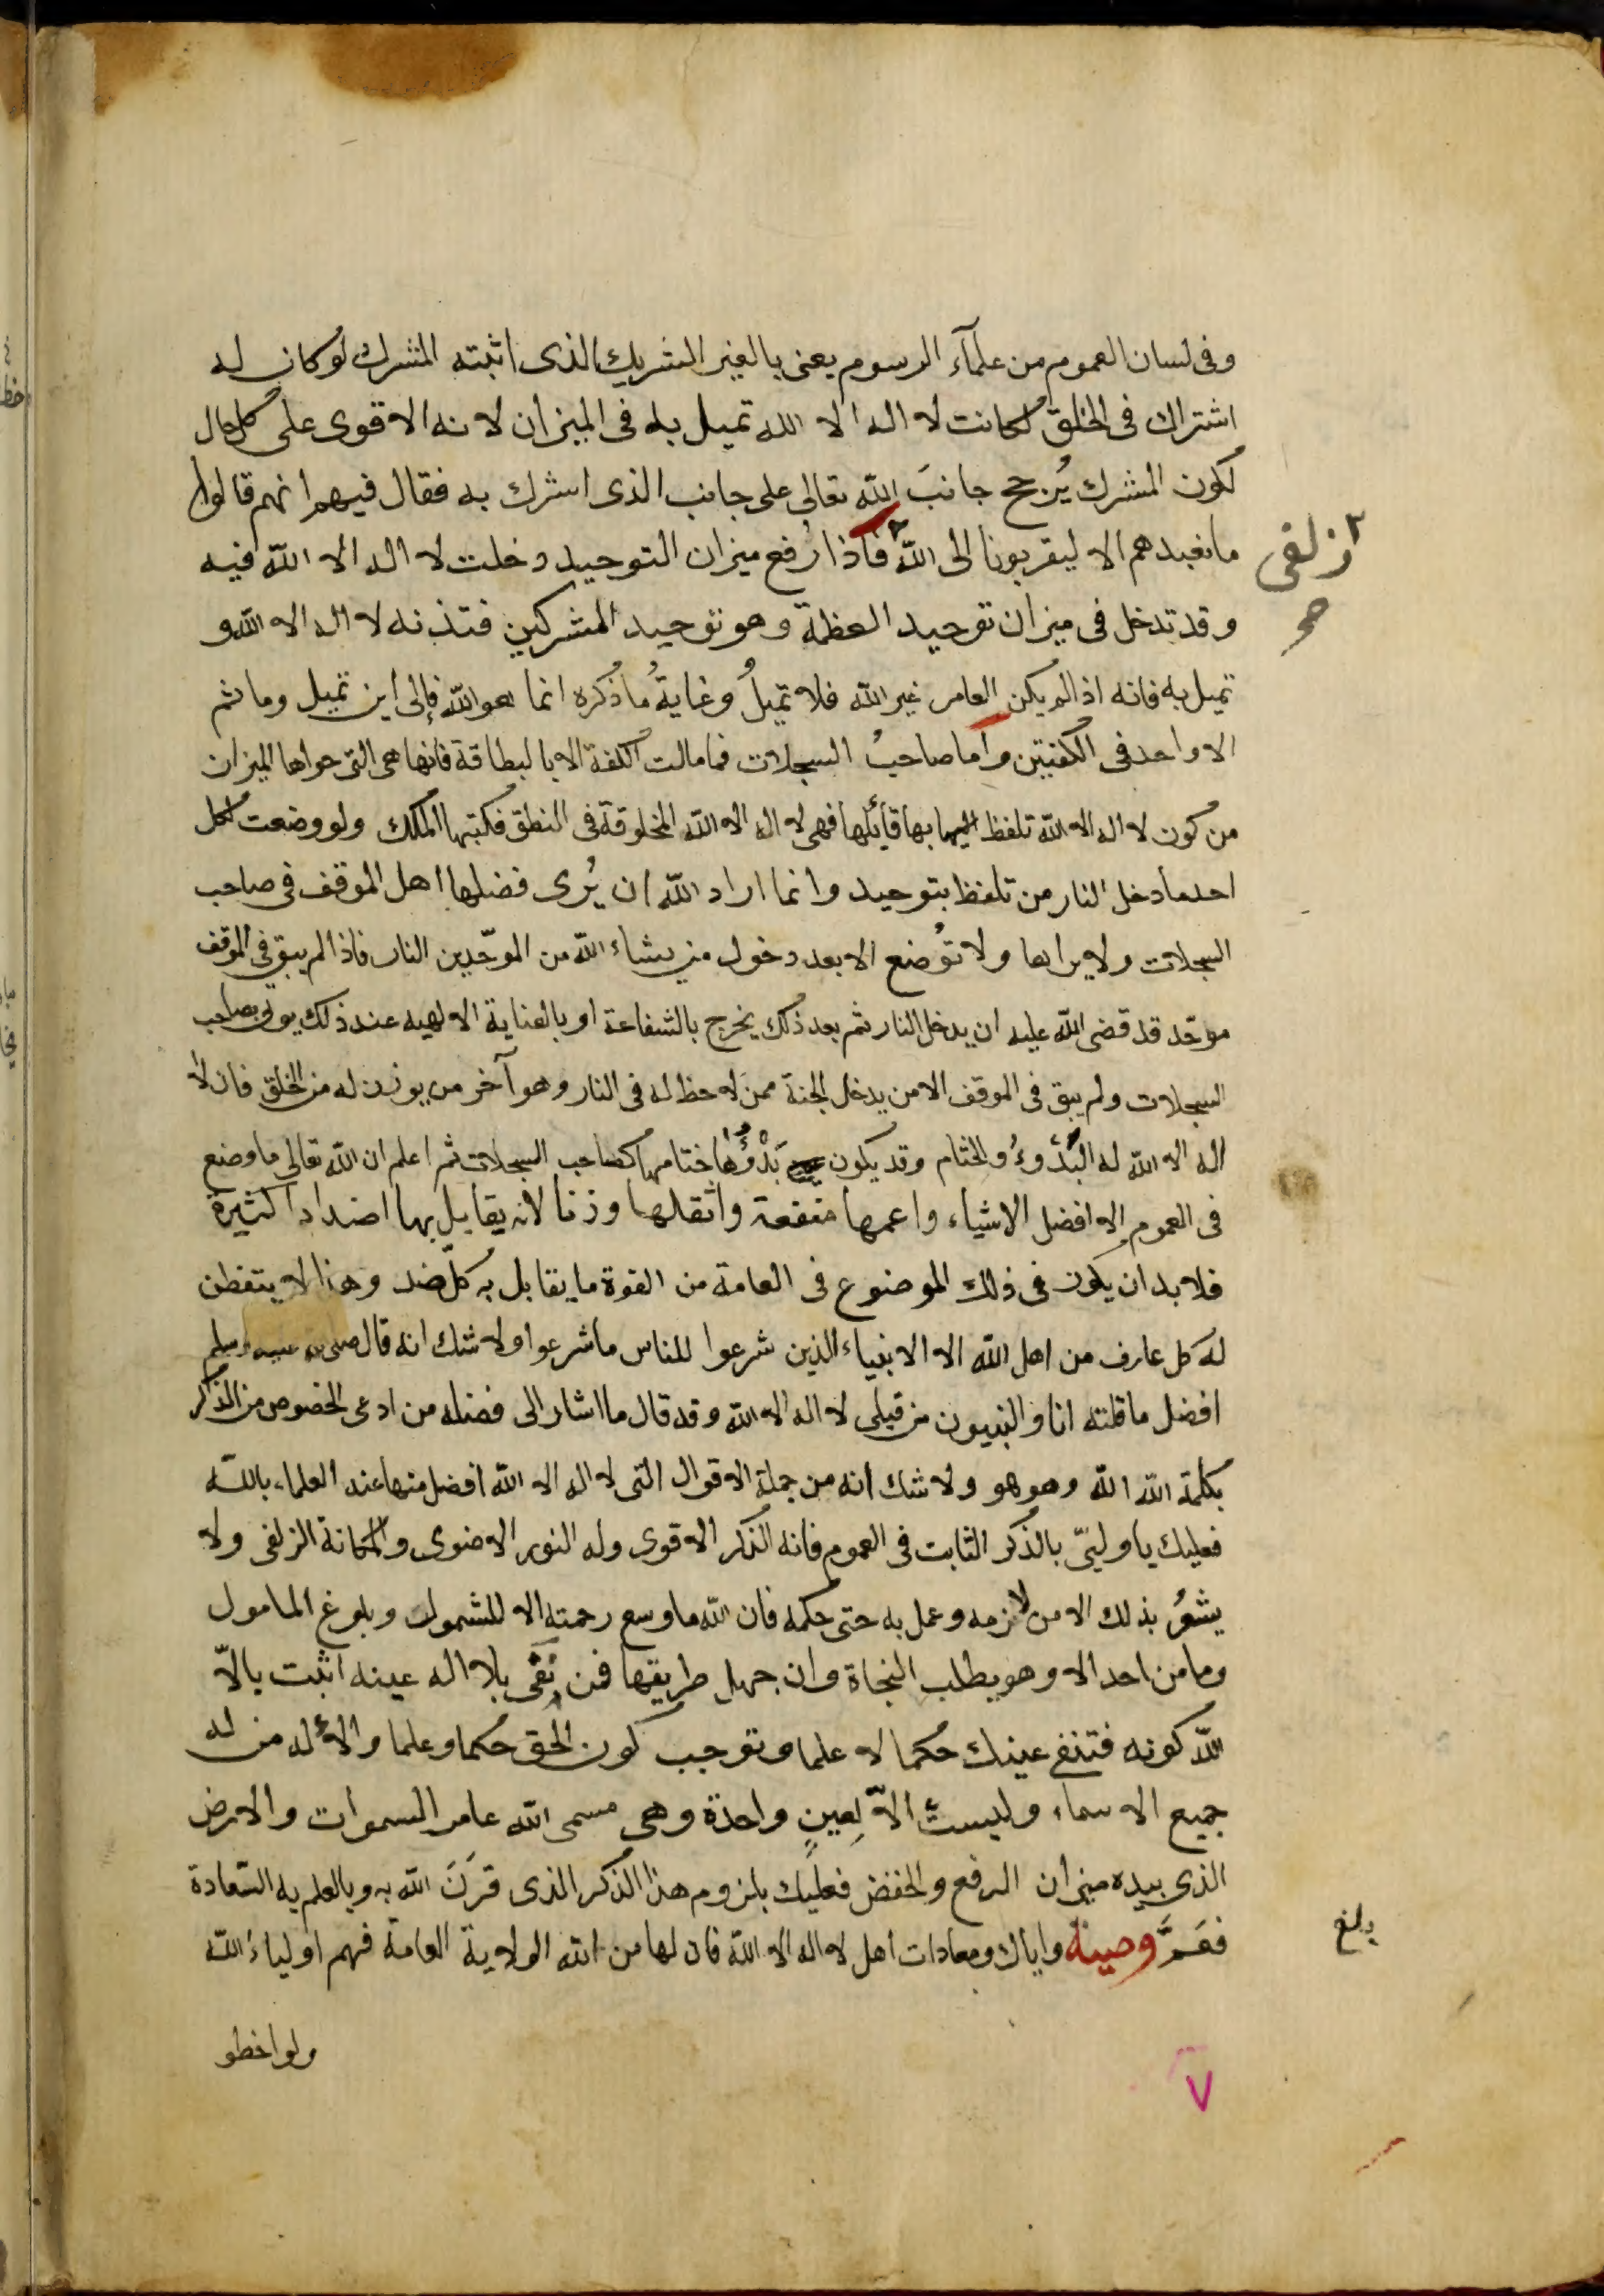 وفى لسان العموم من علمآء الرسوم يعنى بالغير الشريك الذى اثبته المشرك لو كان له
اشتراك فى الخلق لكانت لا اله الا الله تميل به فى الميزان لانه الاقوى على كل حال
لكون المشرك يُرجح جانبَ الله تعالى على جانب الذى اشرك به فقال فيهم انهم قالوا
ما نعبدهم الا ليقربونا الى الله فاذا رُفع ميزان التوحيد دخلت لا اله الا الله فيه
زلفى
صح
وقد تدخل فى ميزان توحيد العظمة وهو توحيد المشركين فتذنه لا اله الا الله و
تميل به فانه اذا لم يكن العامر غير الله فلا تميلُ وغايةُ ما ذكره انما هو الله فإلى اين تميل وما ثم
الا واحد فى الكفتين وأما صاحبُ السجلات فما مالت الكفة الا بالبطاقة فانها هى التى حواها الميزان
من كون لا اله الا الله تلفظ بها قائلها فهى لا اله الا الله المخلوقة فى النطق فكتبها الملك ولو وضعت لكل
احد ما دخل النار من تلفظ بتوحيد وانما اراد الله ان يُرى فضلها اهل الموقف فى صاحب
السجلات ولا يراها ولا تُوضع الا بعد دخول من يشاء الله من الموحّدين النار فاذا لم يبق فى الموقف
موحّد قد قضى الله عليه ان يدخل النار ثم بعد ذلك يخرج بالشفاعة او بالعناية الالهيه عند ذلك يوتى بصاحب
السجلات ولم يبق فى الموقف الا من يدخل الجنة ممن لا حظ له فى النار وهو آخر من يوزن له من الخلق فان لا
اله الا الله له البُدُوءُ والختام وقد يكون بَدْؤُها ختامها كصاحب السجلات ثم اعلم ان الله تعالى ما وضع
فى العموم إلا افضل الاشياء واعمها منفعة واثقلها وزنا لانه يقابل بها اضدادا كثيرة
فلا بد ان يكون فى ذلك الموضوع فى العامة من القوة ما يقابل به كلّ ضد وهذا لا يتفطن
له كل عارف من اهل الله الا الانبياء الذين شرعوا للناس ما شرعوا ولا شك انه قال صلى الله عليه وسلم
افضل ما قلته انا والنبيون من قبلى لا اله الا الله وقد قال ما اشار الى فضله من ادعى الخصوص من الذكر
بكلمة الله الله وهو هو ولا شك انه من جملة الاقوال التى لا اله الا الله افضل منها عند العلماء بالله
فعليك يا وليىّ بالذكر الثابت فى العموم فانه الذكر الاقوى وله النور الاضوى والمكانة الزلفى ولا
يشعُرُ بذلك الا من لازمه وعمل به حتى حكمه فان الله ما وسع رحمته الا للشمول وبلوغ المامول
وما من احد الا وهو يطلب النجاة وان جهل طريقها فمن نَفَى بلا اله عينه اثبت بالّا
الله كونه فتنفى عينك حكما لا علما وتوجب كون الحق حكما وعلما والأله من له
جميع الاسماء وليستْ الاّ لِعينٍ واحدة وهى مسمى الله عامر السموات والارض
الذى بيده ميزان الرفع والخفض فعليك بلزوم هذا الذكر الذى قَرَنَ الله به وبالعلم به السّعادة
فعَمَّ وصية واياك ومعادات اهل لا اله الا الله فان لها من الله الولاية العامة فهم اولياء الله
بلغ
ولو اخطو
٧